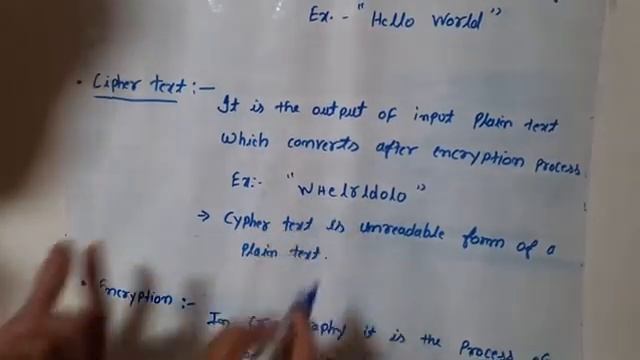 Ex. - "Hello World"
• Cipher text :-
It is the output of input plain text
which converts after encryption process.
Ex:- "WHelrldolo"
→ Cypher text is unreadable form of a
Plain text.
• Encryption :-
In it is the Process of